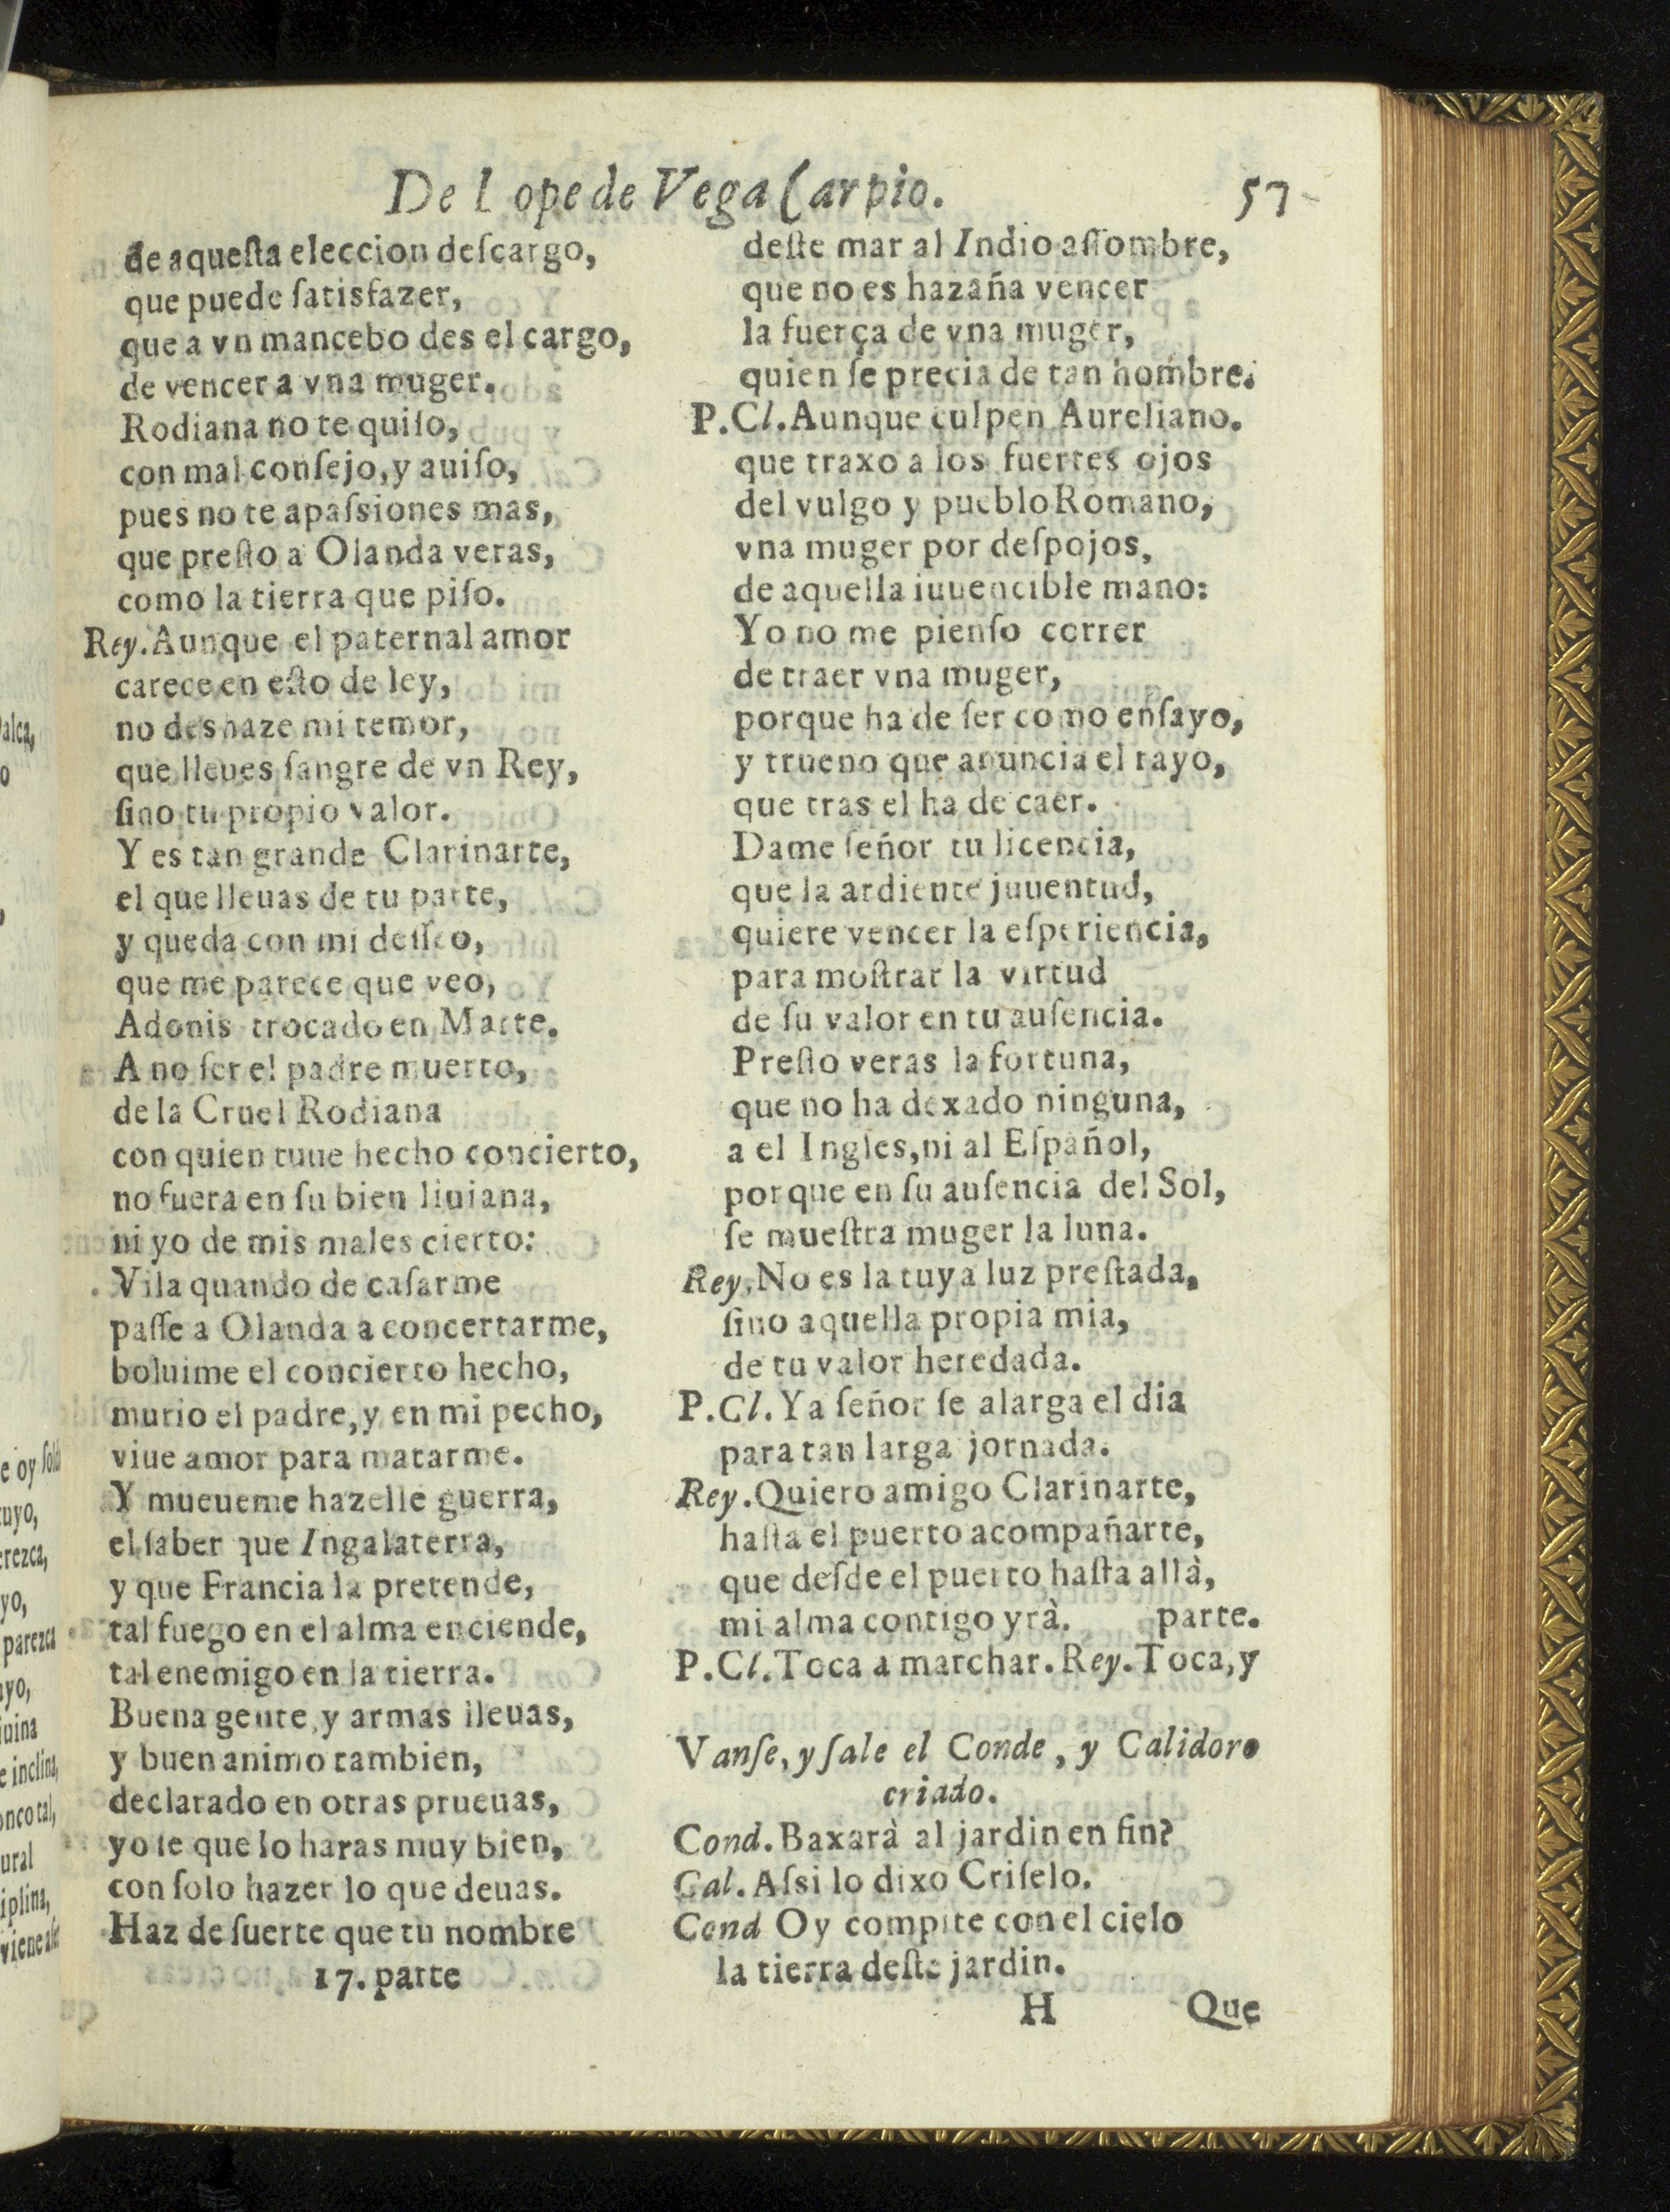 De Lope de Vega Carpio. 57
de aquesta eleccion descargo,
que puede satisfazer,
que a vn mancebo des el cargo,
de vencer a vna muger.
Rodiana no te quiso,
con mal consejo, y auiso,
pues no te apassiones mas,
que presto a Olanda veras,
como la tierra que piso.
Rey. Aunque el paternal amor
carece en esto de ley,
no deshaze mi temor,
que lleues sangre de vn Rey,
sino tu propio valor.
Y es tan grande Clarinarte,
el que lleuas de tu parte,
y queda con mi desseo,
que me parece que veo,
Adonis trocado en Marte.
A no ser el padre muerto,
de la Cruel Rodiana
con quien tuue hecho concierto,
no fuera en su bien liuiana,
ni yo de mis males cierto:
Vila quando de casarme
passe a Olanda a concertarme,
boluime el concierto hecho,
murio el padre, y en mi pecho,
viue amor para matarme.
Y mueueme hazelle guerra,
el saber que Ingalaterra,
y que Francia la pretende,
tal fuego en el alma enciende,
tal enemigo en la tierra.
Buena gente, y armas lleuas,
y buen animo tambien,
declarado en otras prueuas,
yo se que lo haras muy bien,
con solo hazer lo que deuas.
Haz de suerte que tu nombre
17. parte
deste mar al Indio assombre,
que no es hazaña vencer
la fuerça de vna muger,
quien se precia de tan hombre.
P.Cl. Aunque culpen Aureliano.
que traxo a los fuertes ojos
del vulgo y pueblo Romano,
vna muger por despojos,
de aquella iuuencible mano:
Yo no me pienso correr
de traer vna muger,
porque ha de ser como ensayo,
y trueno que anuncia el rayo,
que tras el ha de caer.
Dame señor tu licencia,
que la ardiente juuentud,
quiere vencer la esperiencia,
para mostrar la virtud
de su valor en tu ausencia.
Presto veras la fortuna,
que no ha dexado ninguna,
a el Ingles, ni al Español,
porque en su ausencia del Sol,
se muestra muger la luna.
Rey. No es la tuya luz prestada,
sino aquella propia mia,
de tu valor heredada.
P.Cl. Ya señor se alarga el dia
para tan larga jornada.
Rey. Quiero amigo Clarinarte,
hasta el puerto acompañarte,
que desde el puerto hasta allà,
mi alma contigo yrà. parte.
P.Cl. Toca a marchar. Rey. Toca, y
Vanse, y sale el Conde, y Calidoro
criado.
Cond. Baxarà al jardin en fin?
Cal. Assi lo dixo Criselo.
Cond Oy compite con el cielo
la tierra deste jardin.
H Que